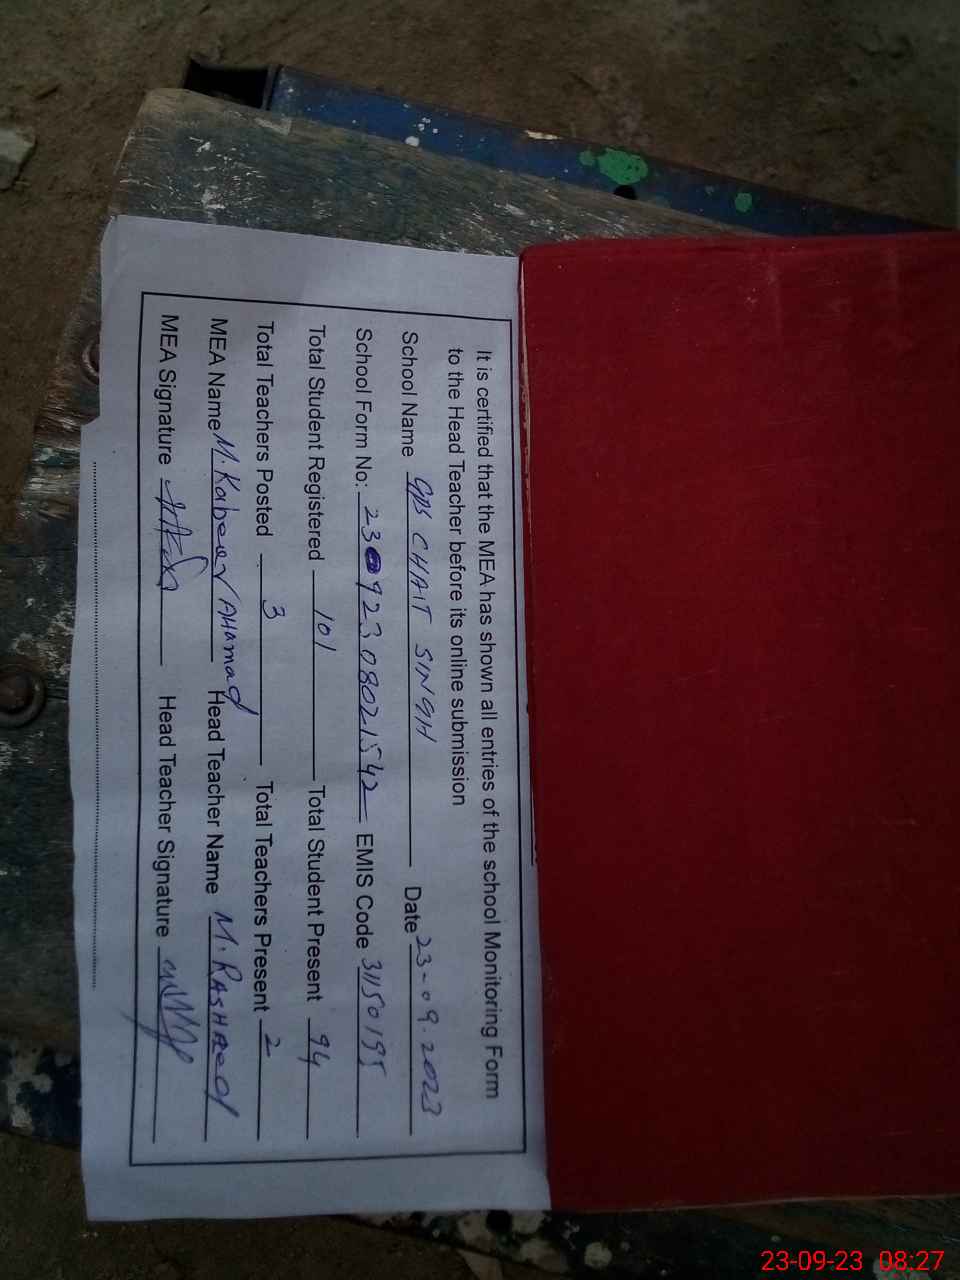 It is certified that the MEA has shown all entries of the school Monitoring Form
to the Head Teacher before its online submission
School Name GPS CHAIT SINGH Date 23-09.2023
School Form No: 23092308021542 EMIS Code 31150195
Total Student Registered 101 Total Student Present 94
Total Teachers Posted 3 Total Teachers Present 2
MEA Name M. Kabeer AHamad Head Teacher Name M. RASHEED
MEA Signature Head Teacher Signature
23-09-23 08:27